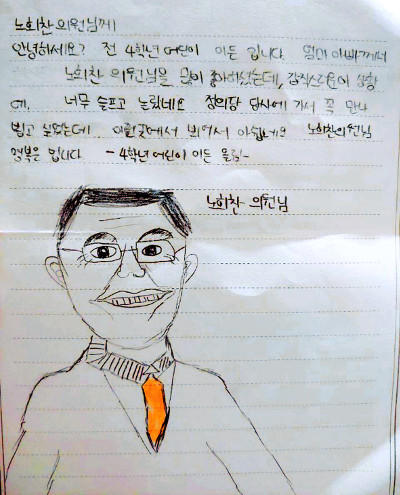 노회찬 의원님께
안녕하세요? 전 4학년 어린이 이든 입니다. 엄마 아빠께서
노회찬 의원님을 많이 좋아하셨는데, 갑작스러운 상황
에. 너무 슬프고 놀랐네요 정의당 당사에 가서 꼭 만나
뵙고 싶었는데. 이런곳에서 뵈어서 아쉽네요 노회찬의원님
행복은 빕니다 -4학년 어린이 이든 올림-
노회찬 의원님